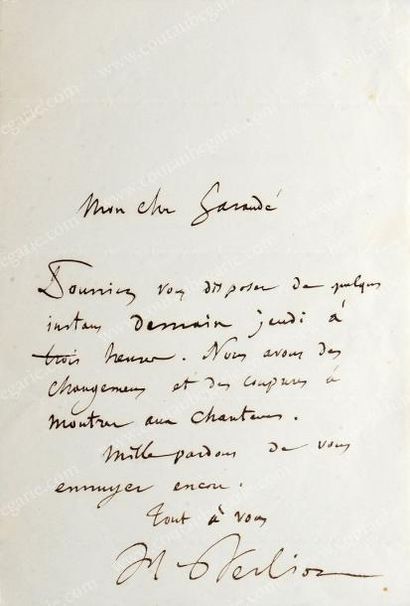 Mon cher Garaudé
Pourriez vous disposer de quelques
instans demain jeudi à
trois heures. Nous avons des
changemens et des coupures à
montrer aux chanteurs.
Mille pardons de vous
ennuyer encore.
Tout à vous
H Berlioz